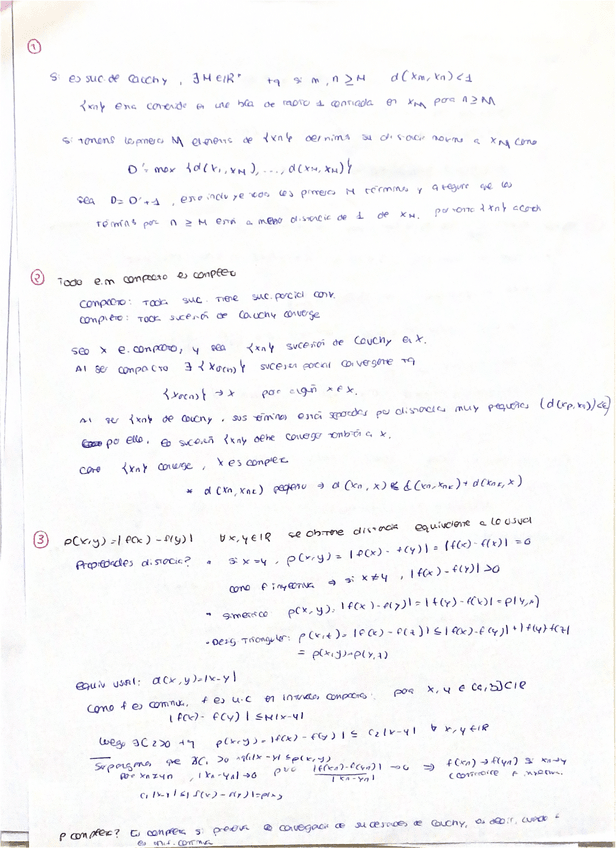 ①
Si es suc. de Cauchy, ∃ M ∈ ℝ⁺ tq si m, n ≥ M d(xm, xn) < 1
{xn} está contenida en una bola de radio 1 centrada en xM para n ≥ M
Si tomamos los primeros M elementos de {xn} definimos su distancia a xM como
D' = max {d(x1, xM), ..., d(xM, xM)}
Sea D = D' + 1, los primeros M términos y que los
términos para n ≥ M están a menos distancia de 1 de xM. por tanto {xn} acotada
② Todo e.m compacto es completo
compacto: Toda suc. tiene suc. parcial conv.
completo: Toda sucesión de Cauchy converge
Sea X e. compacto, y sea {xn} sucesión de Cauchy en X.
Al ser compacto ∃ {xσ(n)} sucesión parcial convergente tq
{xσ(n)} → x para algún x ∈ X.
Al ser {xn} de Cauchy, sus términos están separados por distancias muy pequeñas (d(xp, xq) < ε)
por ello, la sucesión {xn} debe converger también a x.
como {xn} converge, X es completo
* d(xn, xnk) pequeño ⇒ d(xn, x) ≤ d(xn, xnk) + d(xnk, x)
③ ρ(x,y) = |f(x) - f(y)| ∀ x,y ∈ ℝ se obtiene distancia equivalente a la usual
Propiedades distancia? • si x = y, ρ(x,y) = |f(x) - f(y)| = |f(x) - f(x)| = 0
como f inyectiva ⇒ si x ≠ y, |f(x) - f(y)| > 0
• simétrica ρ(x,y) = |f(x) - f(y)| = |f(y) - f(x)| = ρ(y,x)
• Desig Triangular: ρ(x,z) = |f(x) - f(z)| ≤ |f(x) - f(y)| + |f(y) - f(z)|
= ρ(x,y) + ρ(y,z)
equiv usual: d(x,y) = |x-y|
Como f es continua, f es u.c en intervalos compactos: para x, y ∈ [a,b] ⊂ ℝ
|f(x) - f(y)| ≤ M|x-y|
luego ∃ C2 > 0 tq ρ(x,y) = |f(x) - f(y)| ≤ C2|x-y| ∀ x,y ∈ ℝ
Supongamos que ∄ C1 > 0 tq C1|x-y| ≤ ρ(x,y)
para xn ≠ yn, |xn - yn| → 0 pero |f(xn) - f(yn)| / |xn - yn| → 0 ⇒ f(xn) → f(yn) si xn → y
C1|x-y| ≤ |f(x) - f(y)| = ρ(x,y)
ρ completo? Es completo si preserva la convergencia de sucesiones de Cauchy, es decir, cuando f
es unif. continua